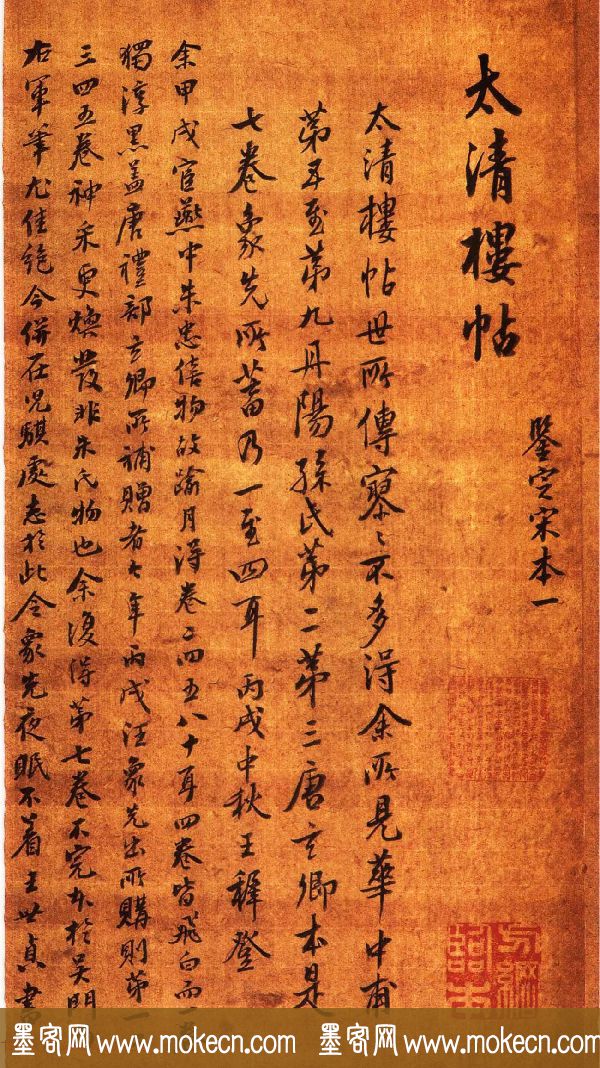 太清樓帖
鑒定宋本一
太清樓帖世所傳寥〻不多得余所見華中甫
第五至第九丹陽孫氏第二第三唐玄卿本是
七卷象先所蓄乃一至四耳丙戌中秋王穉登
余甲戌宦燕中朱忠僖物故踰月得卷二四五八十耳四卷皆飛白而一
獨淳黑蓋唐禮部玄卿所補贈者七年丙戌汪象先出所購則第一
三四五卷神采更煥發非朱氏物也余復得第七卷不完本於吳門
右軍筆尤佳絕今併在兒騏處志於此令象先夜眠不著王世貞書
墨客网 www.mokecn.com 墨客网 www.mokecn.com